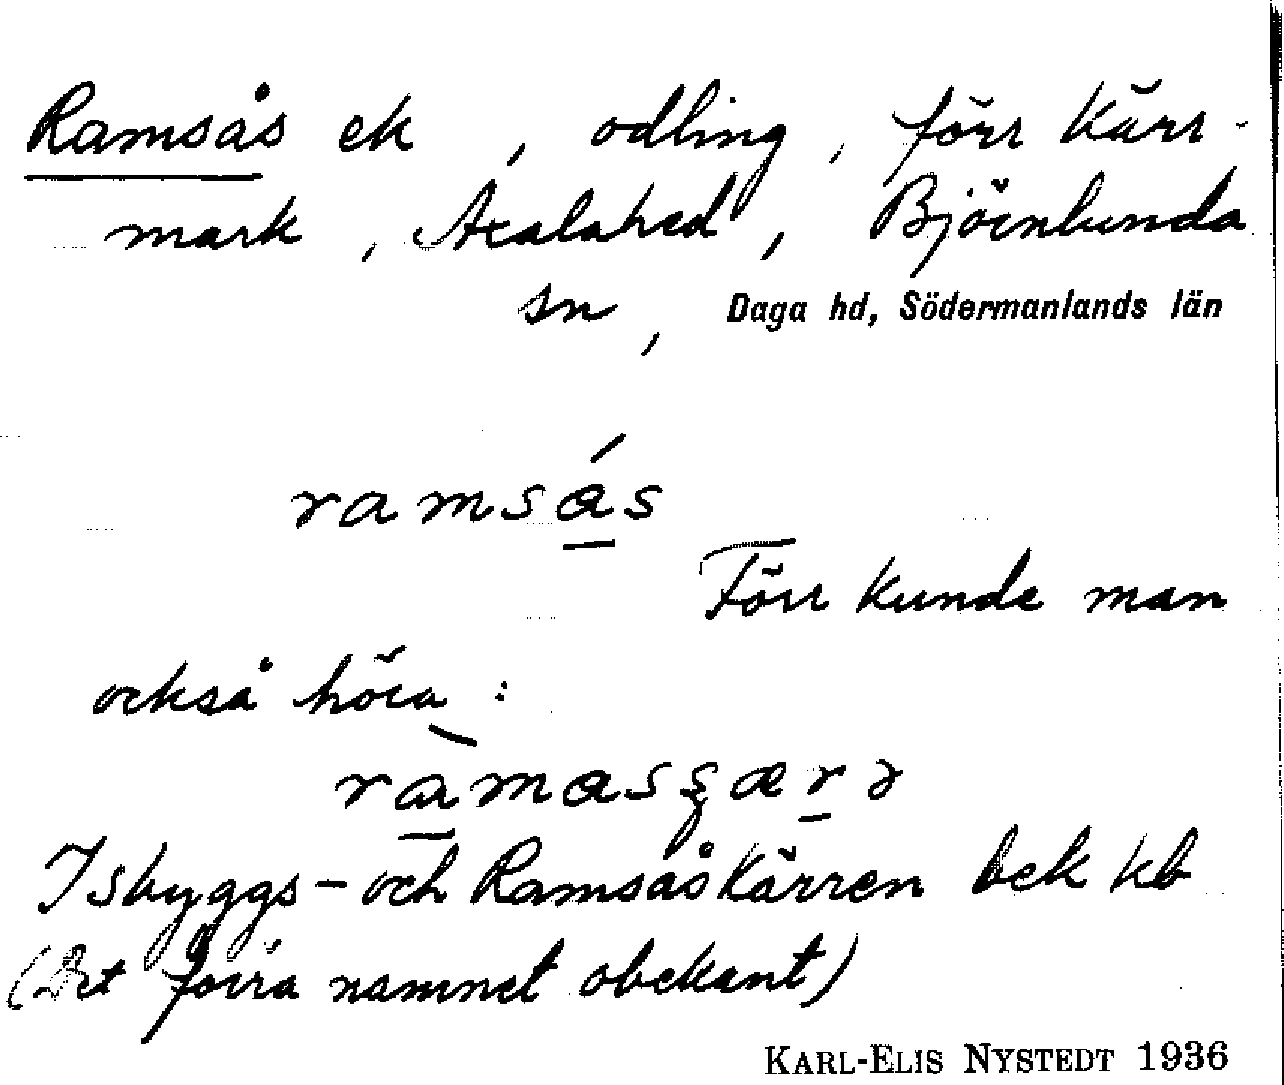 Ramsås ek , odling , förr kärr-
mark , Axalahed , Björnlunda
sn , Daga hd, Södermanlands län
ramsás
Förr kunde man
också höra :
ràmas
Isbyggs- och Ramsåskärren bek kb
(Det förra namnet obekant)
KARL-ELIS NYSTEDT 1936